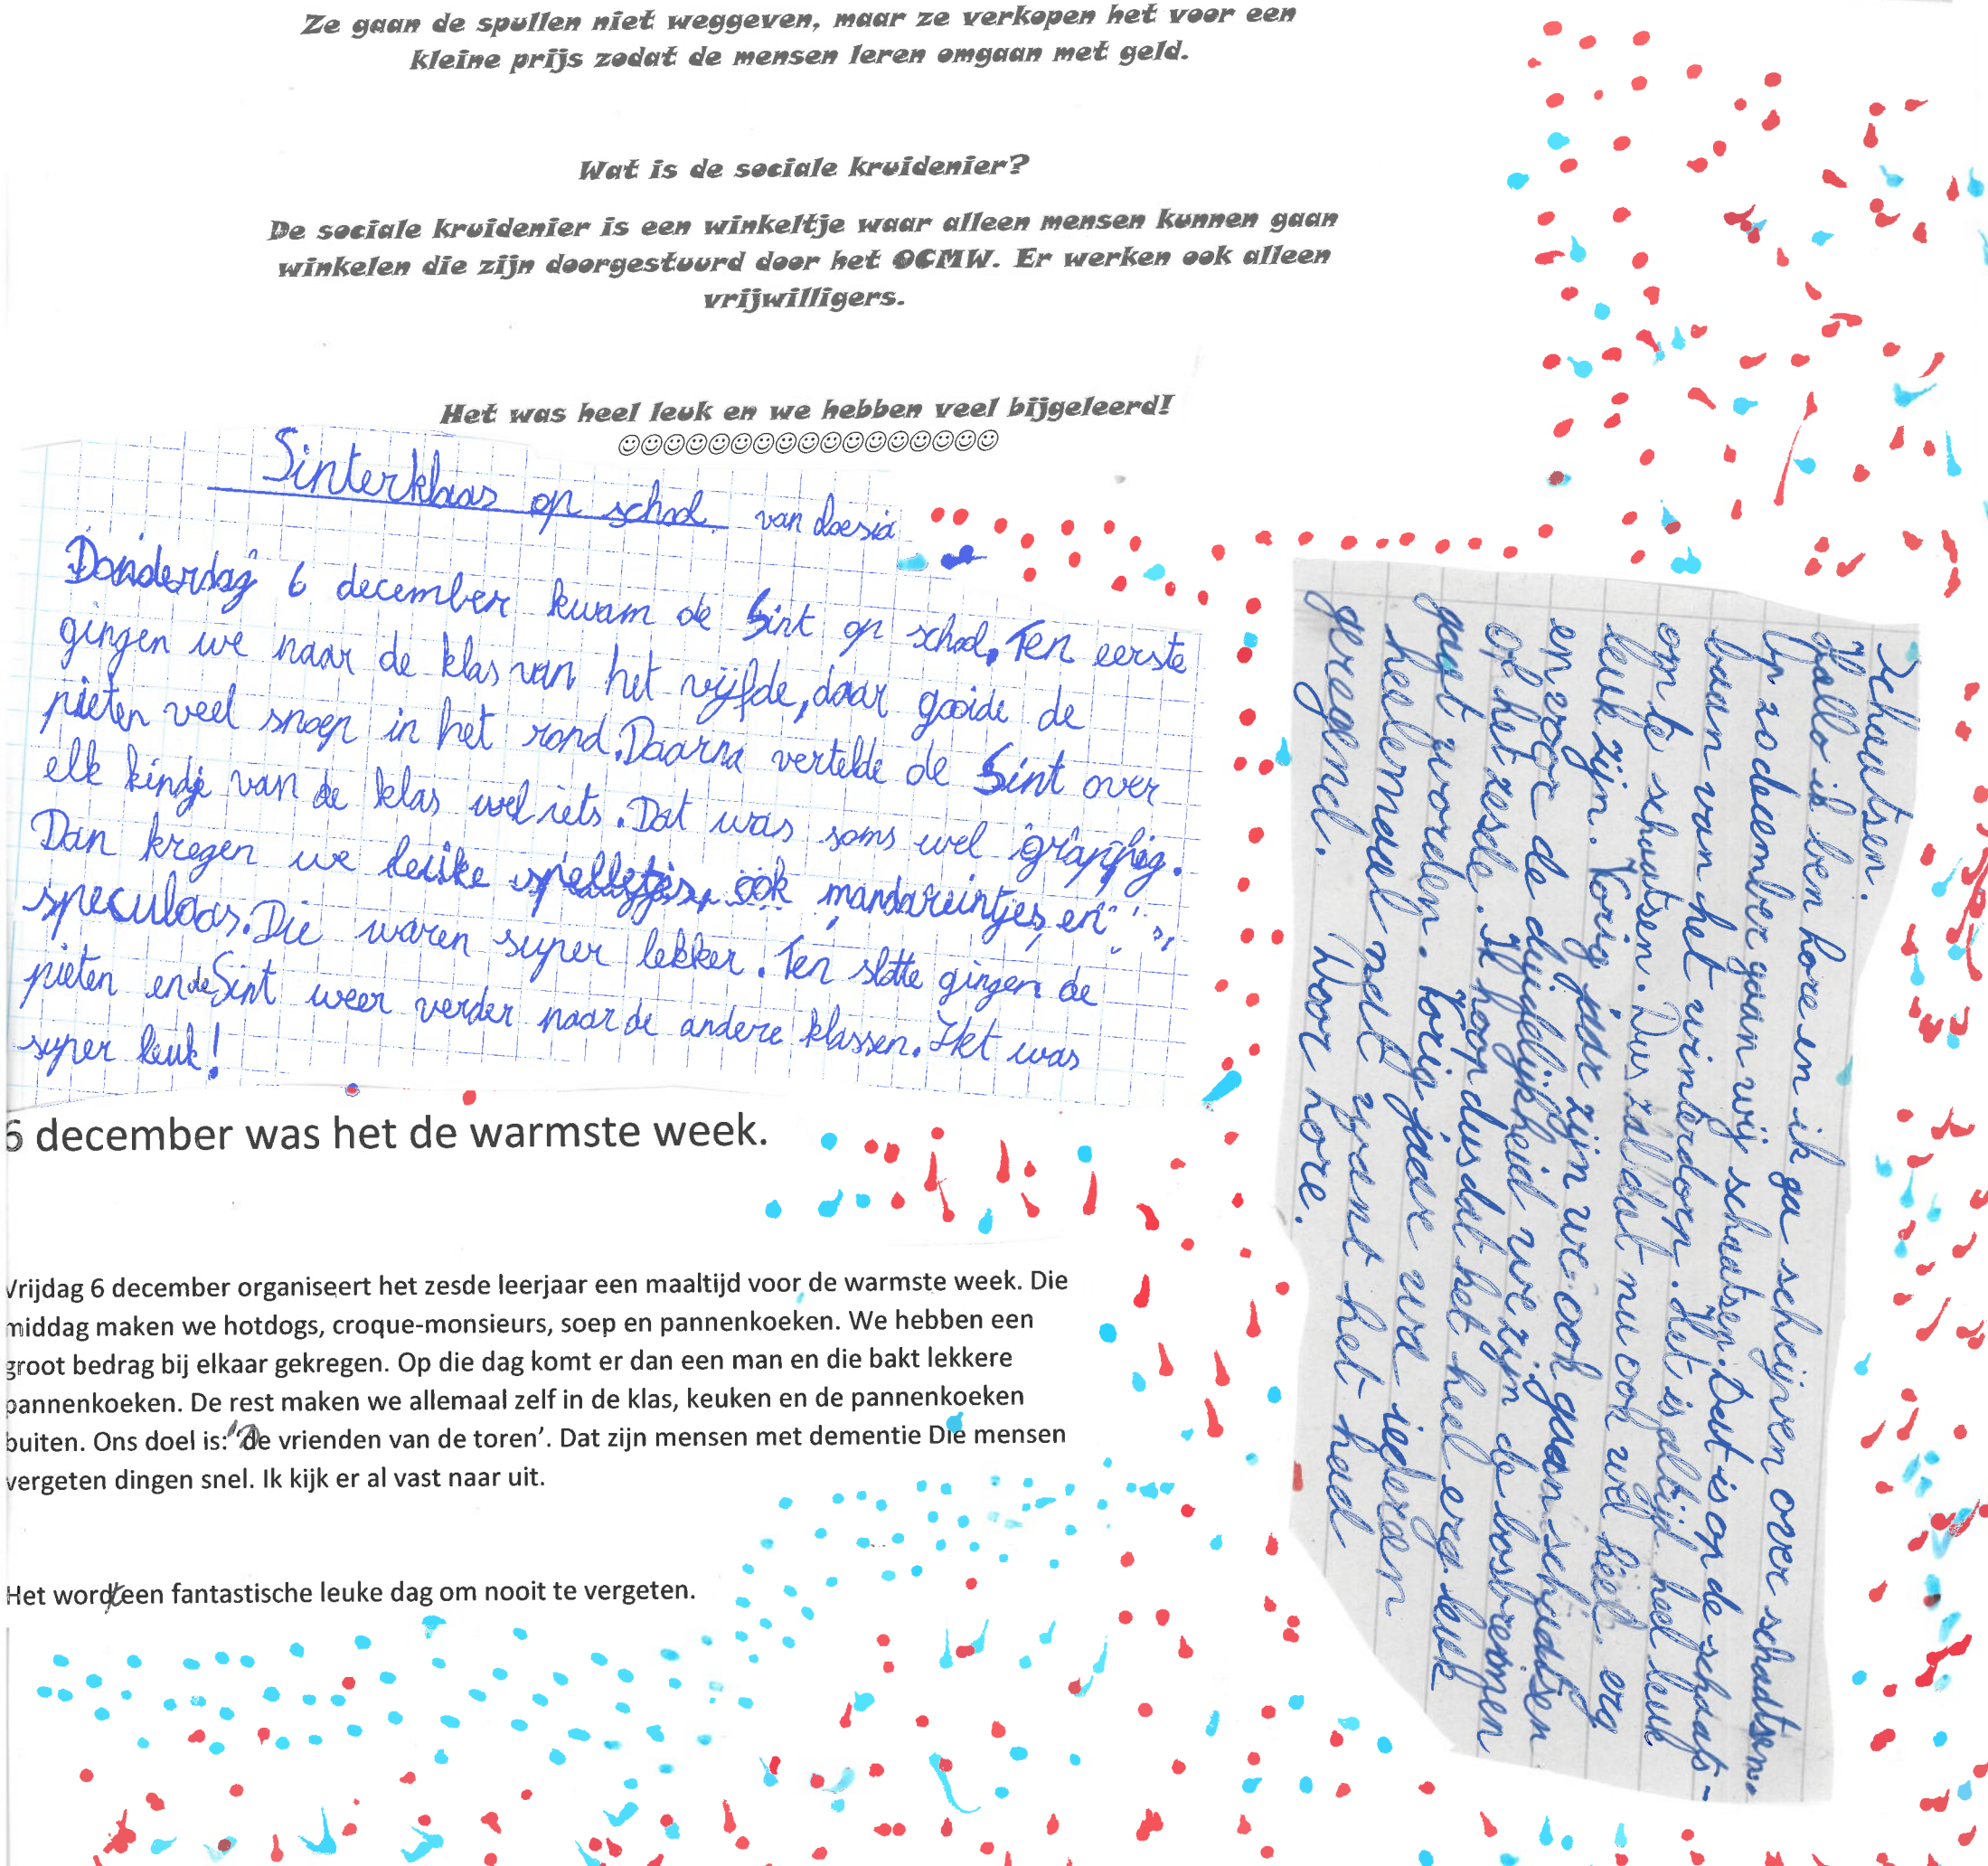 Ze gaan de spullen niet weggeven, maar ze verkopen het voor een
kleine prijs zodat de mensen leren omgaan met geld.
Wat is de sociale kruidenier?
De sociale kruidenier is een winkeltje waar alleen mensen kunnen gaan
winkelen die zijn doorgestuurd door het OCMW. Er werken ook alleen
vrijwilligers.
Het was heel leuk en we hebben veel bijgeleerd!
☺☺☺☺☺☺☺☺☺☺☺☺☺☺☺☺☺
Sinterklaas op school van
Donderdag 6 december kwam de Sint op school. Ten eerste
gingen we naar de klas van het vijfde, daar gooide de
pieten veel snoep in het rond. Daarna vertelde de Sint over
elk kindje van de klas wel iets. Dat was soms wel grappig.
Dan kregen we leuke spelletjes, ook mandareintjes en
speculaas. Die waren super lekker. Ten slotte gingen de
pieten en de Sint weer verder naar de andere klassen. Het was
super leuk!
6 december was het de warmste week.
Vrijdag 6 december organiseert het zesde leerjaar een maaltijd voor de warmste week. Die
middag maken we hotdogs, croque-monsieurs, soep en pannenkoeken. We hebben een
groot bedrag bij elkaar gekregen. Op die dag komt er dan een man en die bakt lekkere
pannenkoeken. De rest maken we allemaal zelf in de klas, keuken en de pannenkoeken
buiten. Ons doel is: 'de vrienden van de toren'. Dat zijn mensen met dementie Die mensen
vergeten dingen snel. Ik kijk er al vast naar uit.
Het wordt een fantastische leuke dag om nooit te vergeten.
Schaatsen.
Hallo ik ben lore en ik ga schrijven over schaatsen.
Op 20 december gaan wij schaatsen. Dat is op de schaats-
baan van het winterdorp. Het is altijd heel leuk
om te schaatsen. Dus zal dat nu ook wel heel erg
leuk zijn. Vorig jaar zijn we ook gaan schaatsen
en voor de duidelijkheid we zijn de bosbremen
of het zesde. Ik hoop dus dat het heel erg leuk
gaat worden. Vorig jaar was iedereen
helemaal nat want het had
geregend. Door Lore.